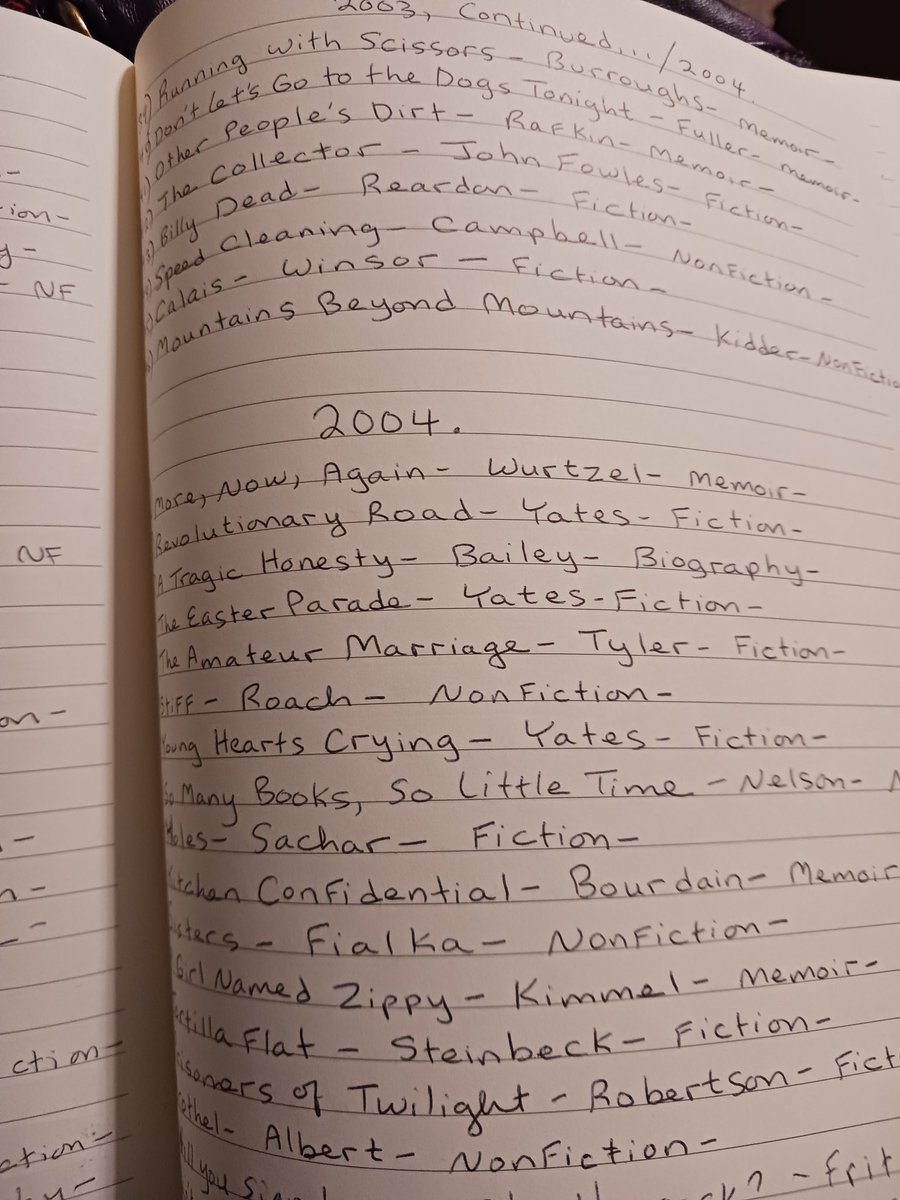 2003, Continued.../2004.
Running with Scissors- Burroughs- Memoir-
Don't Let's Go to the Dogs Tonight - Fuller- Memoir-
Other People's Dirt- Rafkin- Memoir-
The Collector - John Fowles- Fiction-
Billy Dead- Reardan- Fiction-
Speed Cleaning- Campbell- NonFiction-
Calais- Winsor - Fiction-
Mountains Beyond Mountains- Kidder- NonFictio
2004.
More, Now, Again- Wurtzel- Memoir-
Revolutionary Road- Yates- Fiction-
A Tragic Honesty- Bailey- Biography-
The Easter Parade- Yates-Fiction-
The Amateur Marriage- Tyler- Fiction-
Stiff- Roach- NonFiction-
Young Hearts Crying- Yates- Fiction-
So Many Books, So Little Time - Nelson- N
Holes- Sachar- Fiction-
itchen Confidential- Bourdain- Memoir
isters- Fialka- NonFiction-
Girl Named Zippy- Kimmel- Memoir-
rtilla Flat - Steinbeck- Fiction-
isoners of Twilight - Robertson- Fict
ethel- Albert- NonFiction-
ion-
y-
- NF
NF
on-
n-
ction-
ction-